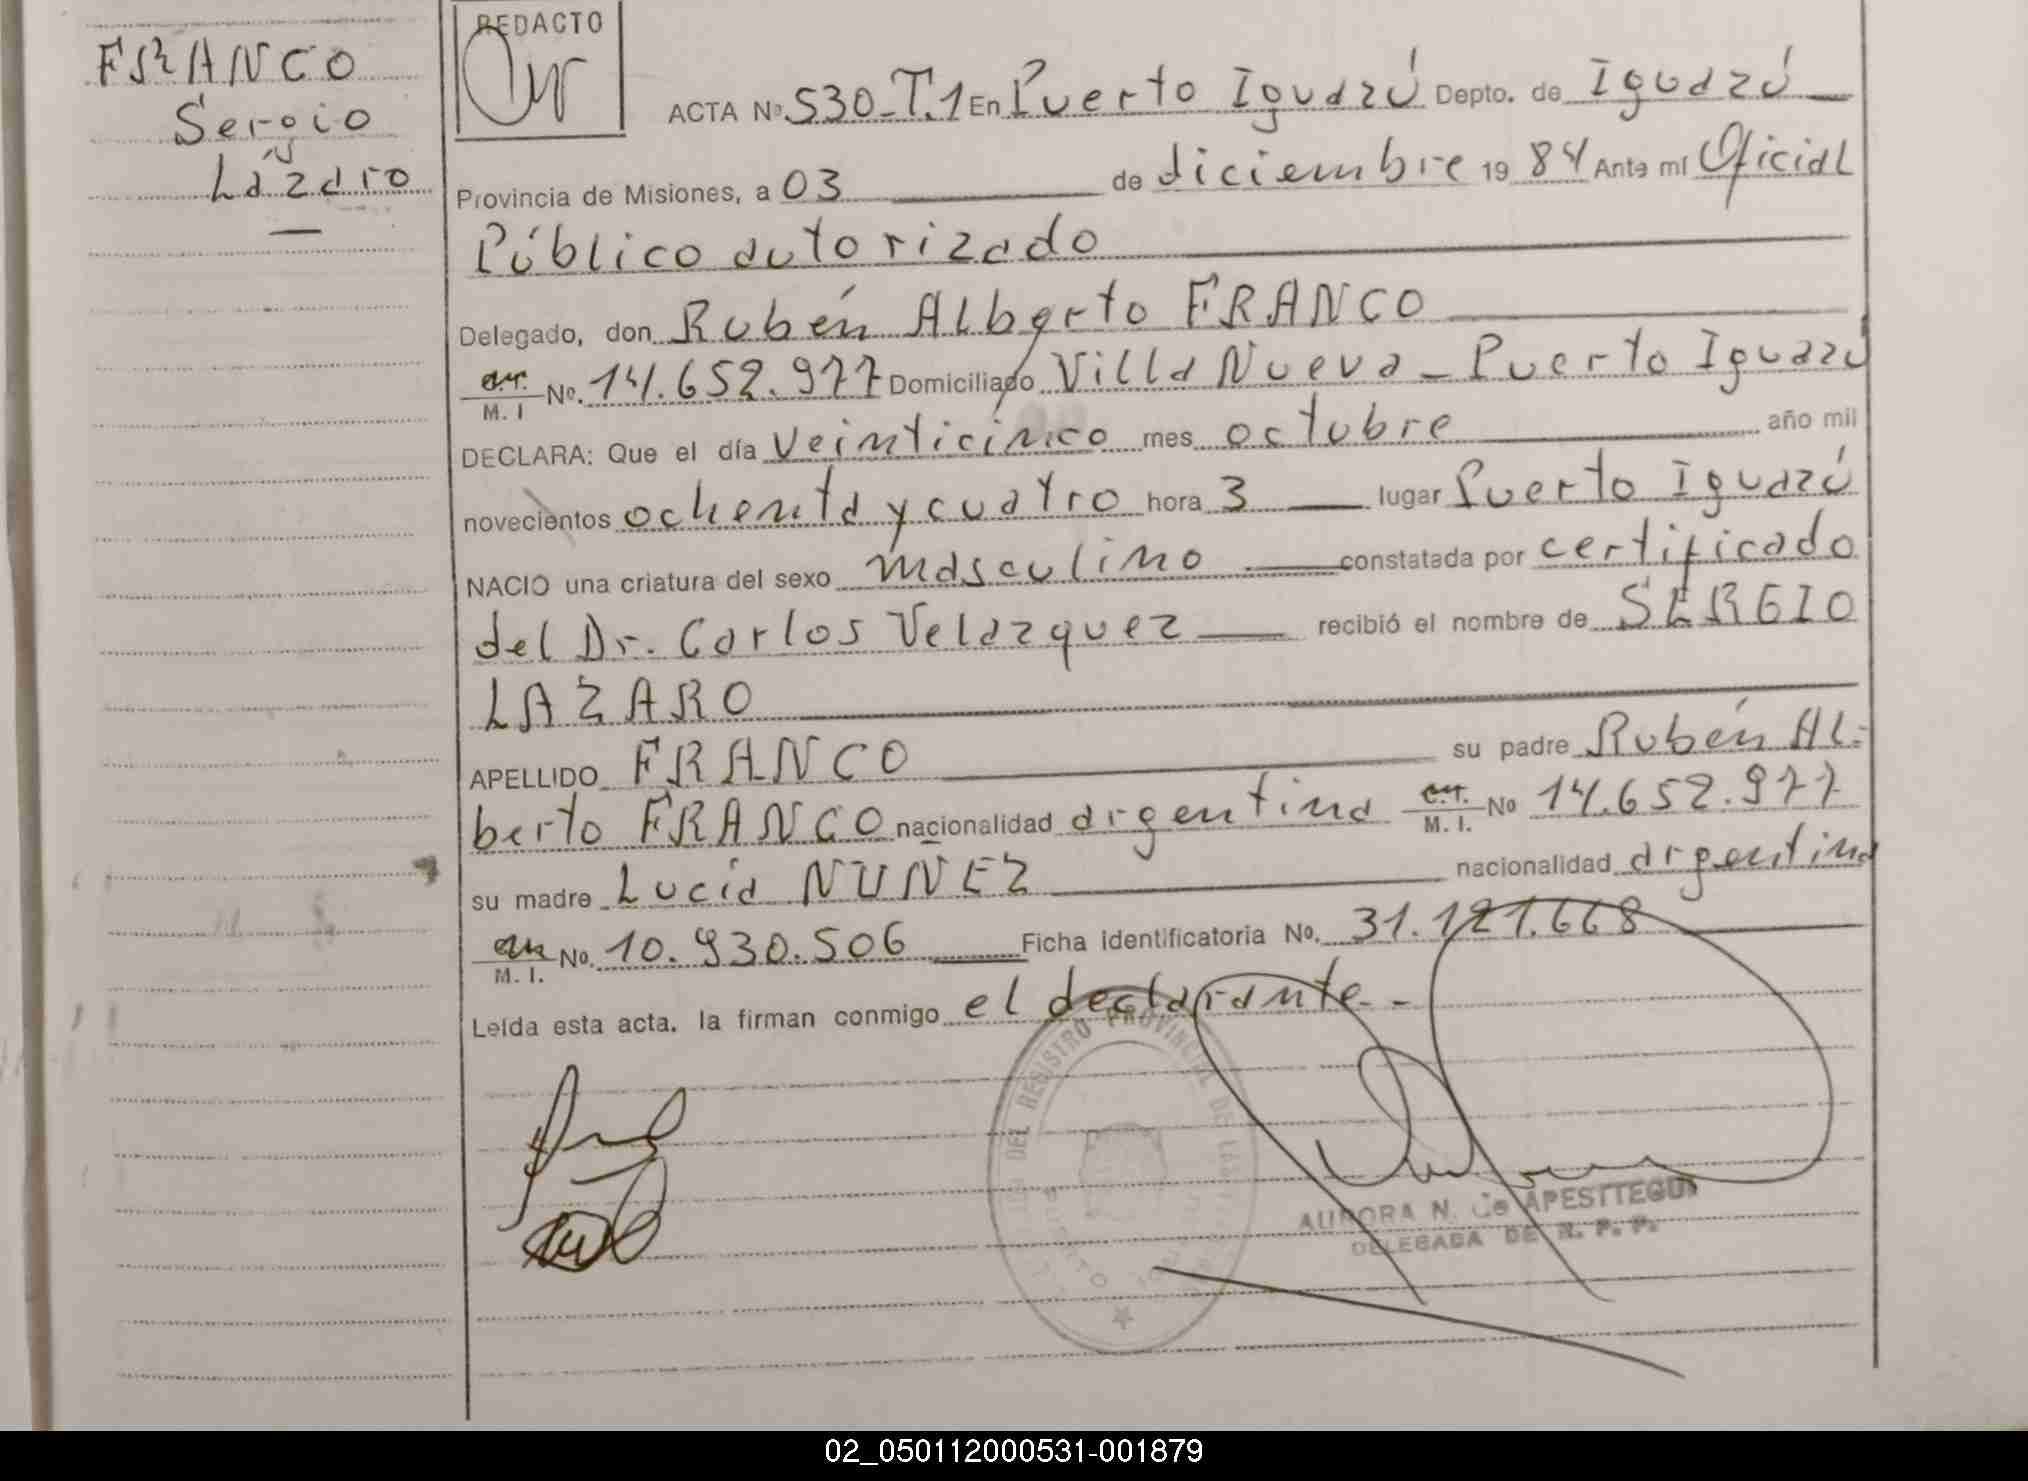 FRANCO
Sergio
Lázaro
REDACTO
ACTA Nº 530-T.1 En Puerto Iguazú Depto. de Iguazú
Provincia de Misiones, a 03 de diciembre 19 84 Ante mí Oficial
Público autorizado
Delegado, don Rubén Alberto FRANCO
M. I No. 14.652.977 Domiciliado Villa Nueva - Puerto Iguazú
DECLARA: Que el día veinticinco mes octubre año mil
novecientos ochenta y cuatro hora 3 lugar Puerto Iguazú
NACIO una criatura del sexo masculino constatada por certificado
del Dr. Carlos Velazquez recibió el nombre de SERGIO
LAZARO
APELLIDO FRANCO su padre Rubén Al-
berto FRANCO nacionalidad argentina M. I. No 14.652.977
su madre Lucía NUÑEZ nacionalidad argentina
M. I. No. 10.930.506 Ficha identificatoria No. 31.121.668
Leída esta acta, la firman conmigo el declarante -
DEL REGISTRO PROVINCIAL DE LAS
PUERTO
AURORA N. de APESTTEGUI
DELEGADA DE R. P. P.
02_050112000531-001879